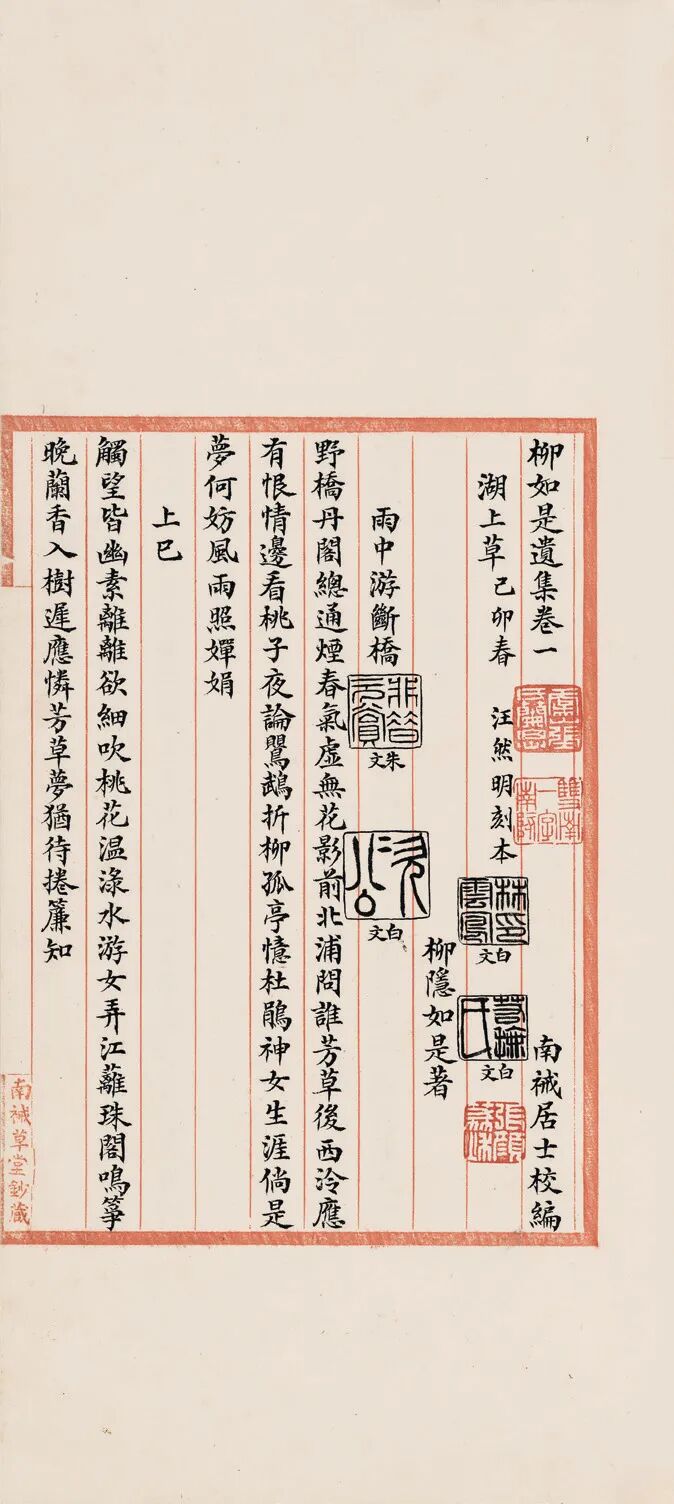 柳如是遺集卷一
南祴居士校編
湖上草 己卯春 汪然明刻本
林印雲鳳
白文
白文
柳隱如是著
雨中游斷橋
朱文
白文
野橋丹閣總通煙春氣虛無花影前北浦問誰芳草後西泠應
有恨情邊看桃子夜論鸎鵡折柳孤亭憶杜鵑神女生涯倘是
夢何妨風雨照嬋娟
上巳
觸望皆幽素離離欲細吹桃花温淥水游女弄江蘺珠閣鳴箏
晚蘭香入樹遲應憐芳草夢猶待捲簾知
南祴草堂鈔藏